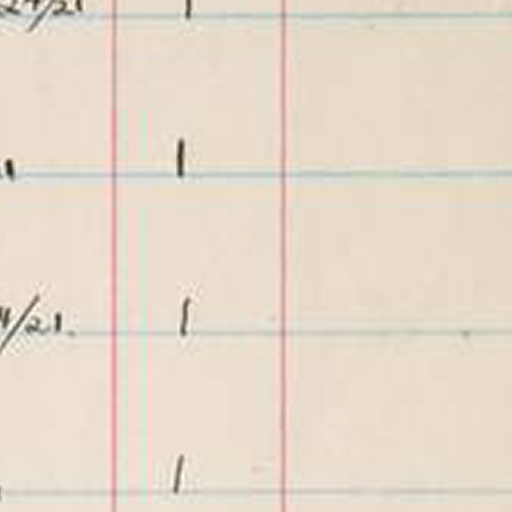 24/21 1
1
4/21. 1
1